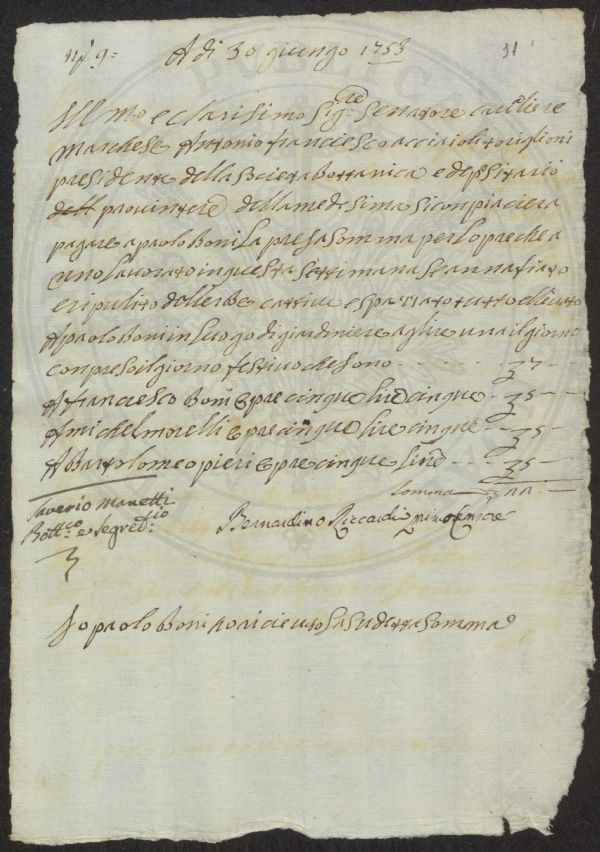 nj 9=
A di 30 giungo 1753
31
Ill mo e clarisimo Sig:re Senatore cavaliere
Marchese Antonio franciesco acciaioli toriglioni
presidente della Societa bottanica e depositario
delle provintere della medesima si conpiaciera
pagare a paolo Boni la presa somma per lo pre che a
vno lavorato in questa settimana e e annafiato
e ripulito dellerbe cattive e spazzato tutto
A paolo Boni in luogo di giardiniere a glire una il giorno
conpreso il giorno festivo che sono - - - 7 -
A francesco Boni opre cinque lire cinque - 5 -
A michel morelli opre cinque lire cinque - 5 -
A Bartolomeo pieri opre cinque lire - - 5 -
Somma 22 -
Saverio Manetti
Bott:co e Segret:rio
Bernardino Riccardi primo Censore
Io paolo Boni o ricieuto la sudetta somma